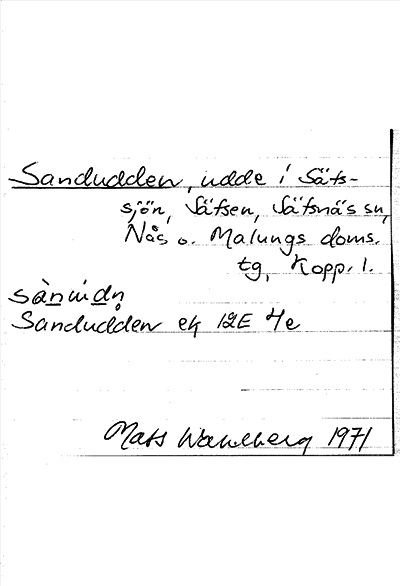 Sandudden, udde i Säfs-
sjön, Säfsen, Säfsnäs sn,
Nås o. Malungs doms.
tg, Kopp. l.
Sandudden ek 12E 4e
Mats Wahlberg 1971